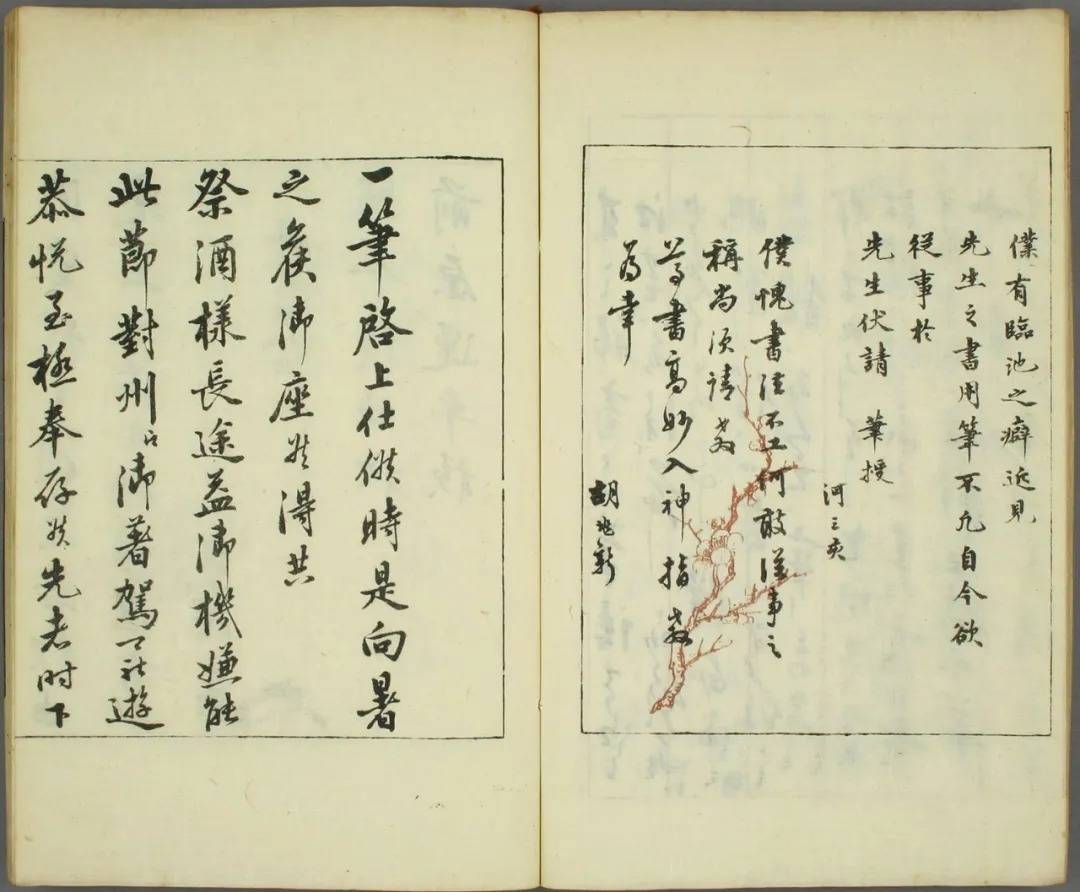 僕有臨池之癖近見
先生之書用筆不凡自今欲
從事於
先生伏請 筆授
河三亥
僕愧書法不工何敢從事之
稱尚須請教
尊書高妙入神指教
為幸
胡兆新
一筆啓上仕候時是向暑
之候御座候得共
祭酒様長途益御機嫌能
此節對州江御着駕可被遊
恭悦至極奉存候先者時下